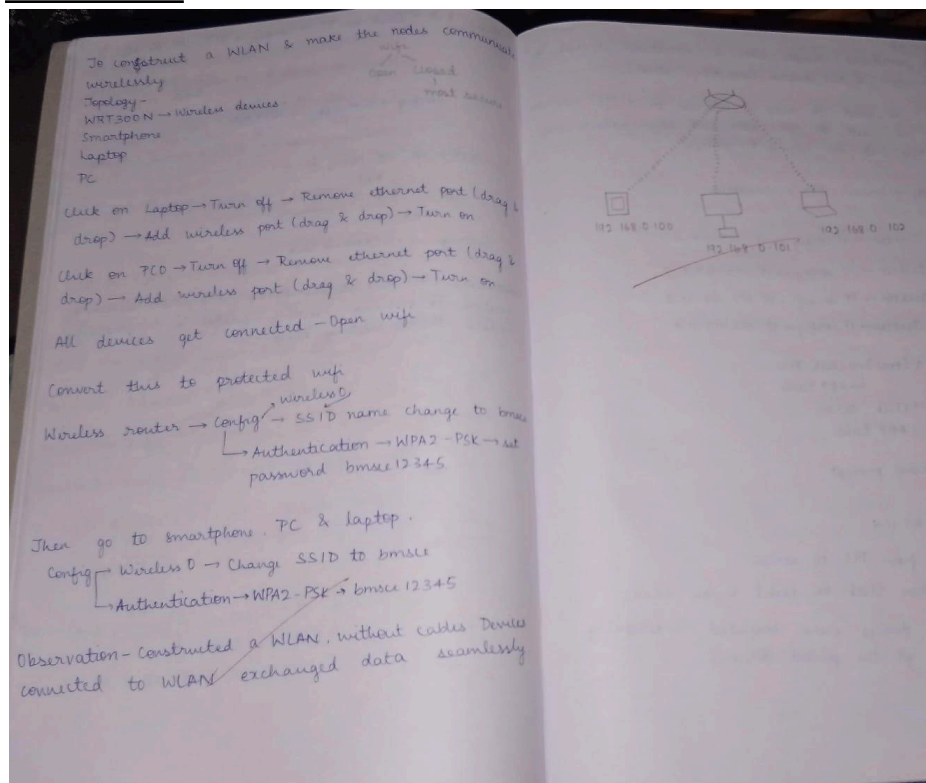 To construct a WLAN & make the nodes communicate
wifi
wirelessly
open closed
most secure
Topology-
WRT300N → Wireless devices.
Smartphone
Laptop
PC
Click on Laptop → Turn off → Remove ethernet port (drag &
drop) → Add wireless port (drag & drop) → Turn on
Click on PC0 → Turn off → Remove ethernet port (drag &
drop) → Add wireless port (drag & drop) → Turn on
All devices get connected - Open wifi
Convert this to protected wifi
wireless0
Wireless router → config → SSID name change to bmsce
→ Authentication → WPA2-PSK → set
password bmsce12345
Then go to smartphone, PC & laptop.
Config → Wireless0 → Change SSID to bmsce
→ Authentication → WPA2-PSK → bmsce12345
Observation - Constructed a WLAN. without cables Devices
connected to WLAN exchanged data seamlessly
192.168.0.100
192.168.0.101
192.168.0.102